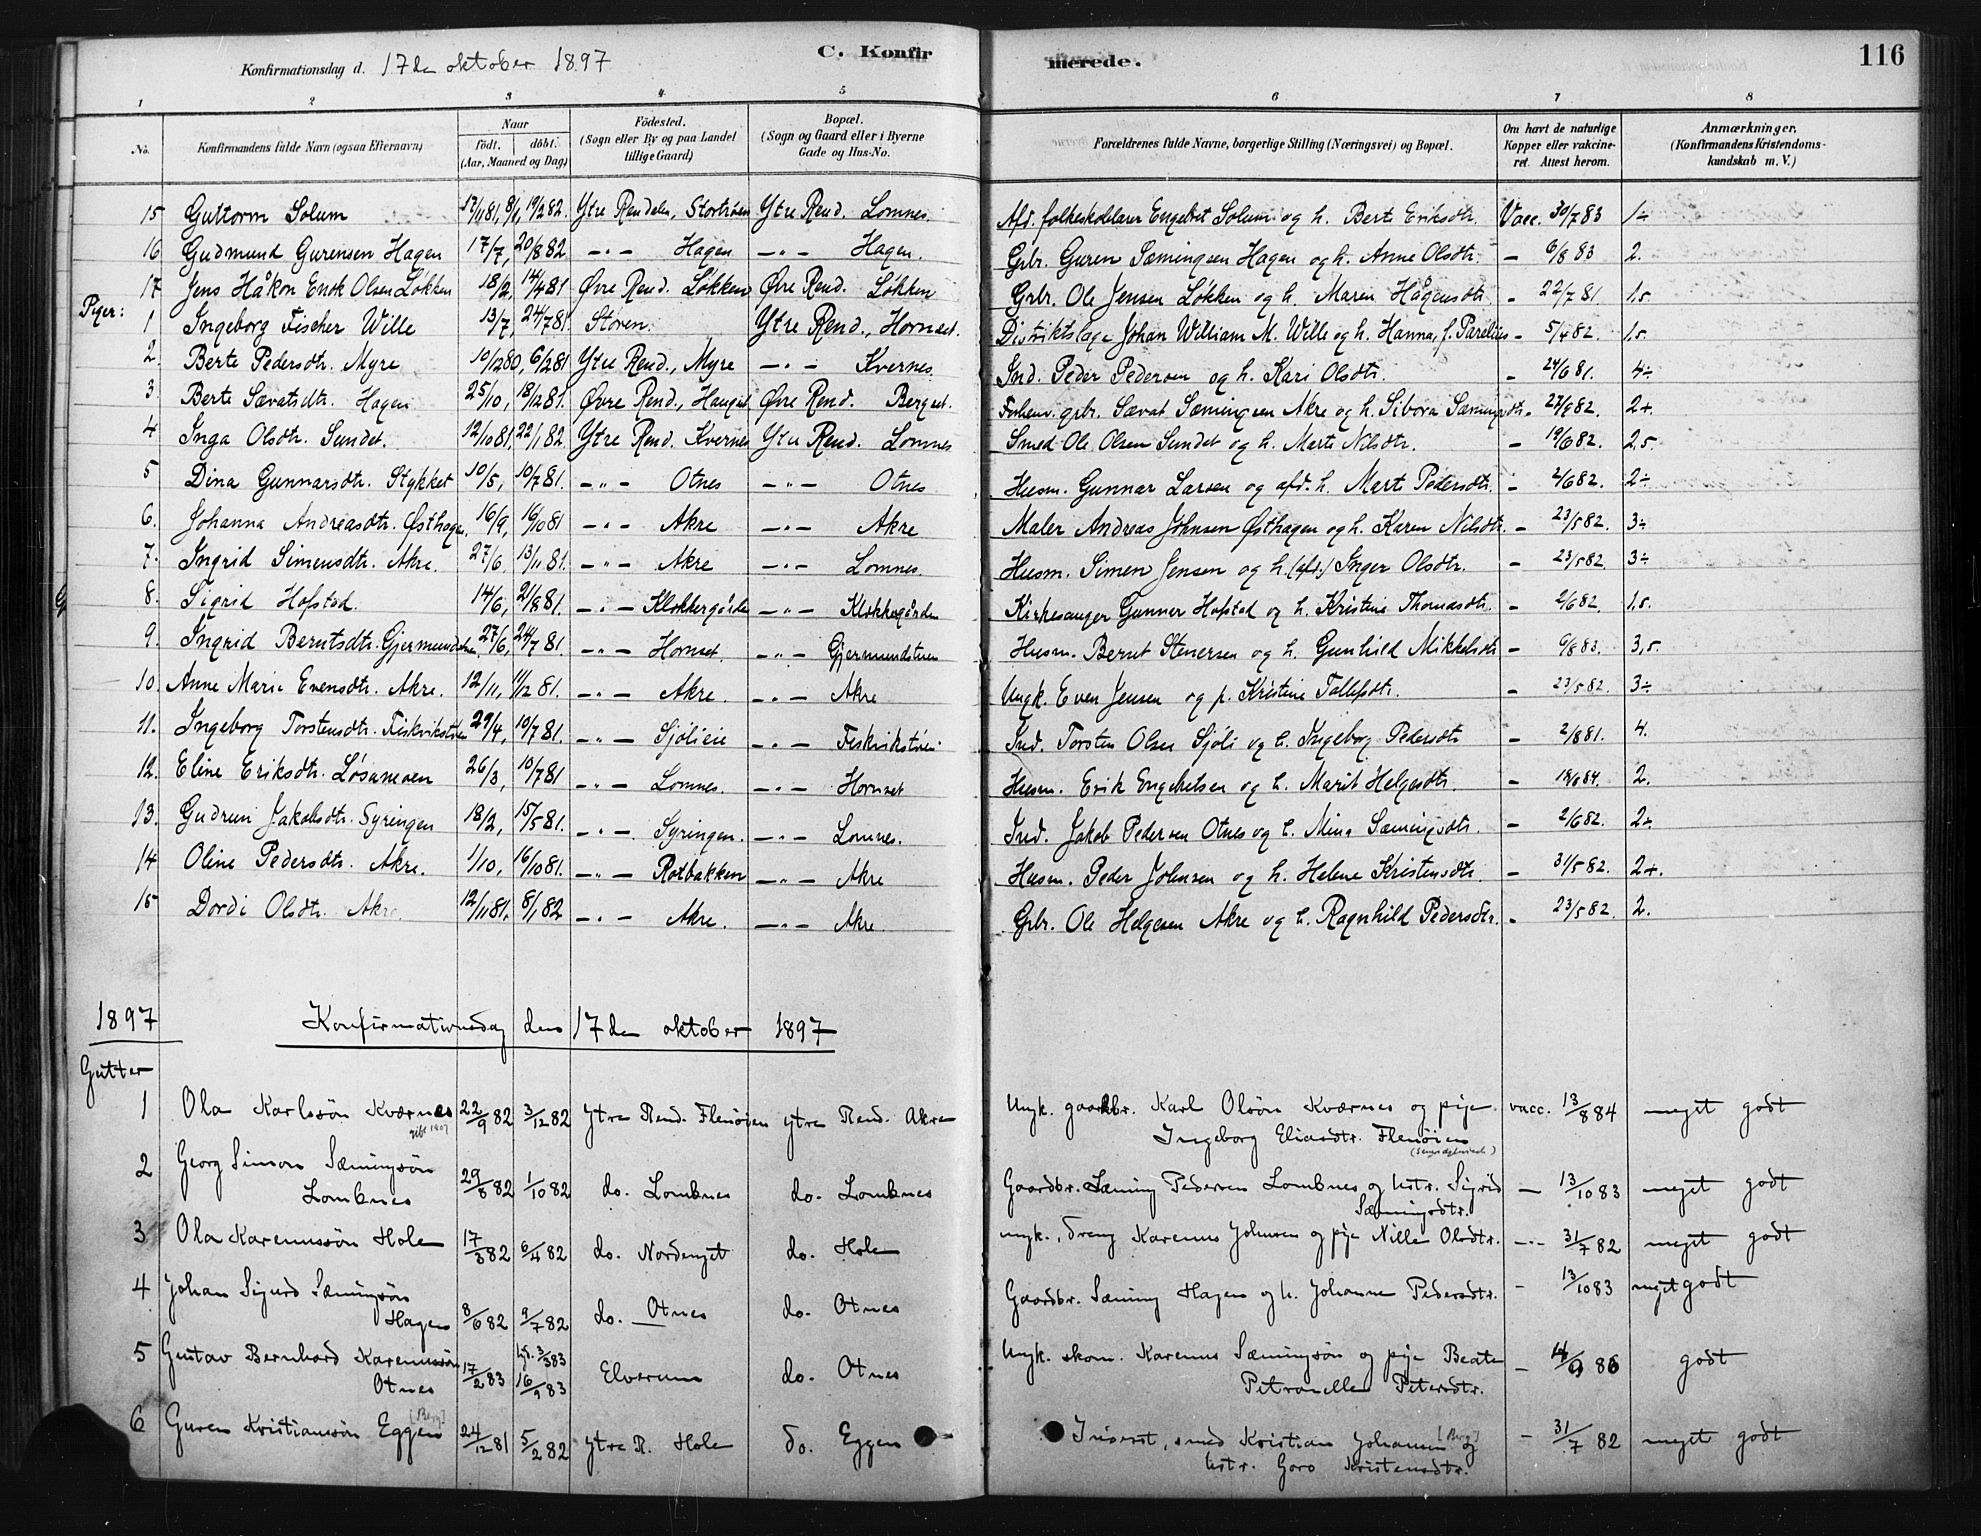 Konfirmationsdag d. 17de oktober 1897 C. Konfirmerede. 116
1 2 3 4 5 6 7 8
No. Konfirmandens fulde Navn (ogsaa Efternavn) Naar födt. döbt. (Aar, Maaned og Dag) Födested. (Sogn eller By og paa Landet tillige Gaard) Bopæl. (Sogn og Gaard eller i Byerne Gade og Hus-No. Forældrenes fulde Navne, borgerlige Stilling (Næringsvei) og Bopæl. Om havt de naturlige Kopper eller vakcineret. Attest herom. Anmærkninger. (Konfirmandens Kristendomskundskab m. V.)
15 Guttorm Solum 17/11 81, 19/2 82. Ytre Rendalen, Ytre Rend. Lomnes. Afd. folkeskolelærer Engebret Solum og h. Berte Eriksdtr. Vacc. 30/7 83 1÷
16 Gudmund Gurensen Hagen 17/7, 20/8 82 -"- Hagen -"- Hagen. Grbr. Guren Sæmingsen Hagen og h. Anne Olsdtr. - 6/8 83 2.
17 Jens Håkon Enok Olsen Løkken 18/2, 14/4 81 Øvre Rend. Løkken Øvre Rend. Løkken Grbr. Ole Jensen Løkken og h. Maren Hågensdtr. - 22/7 81. 1,5.
Piger:
1 Ingeborg Fischer Wille 13/7, 24/7 81. Støren. Ytre Rend., Hornset. Distriktslæge Johan William M. Wille og h. Hanna, f. Parelius - 5/4 82. 1,5.
2. Berte Pedersdtr. Myre 10/12 80, 6/2 81 Ytre Rend., Myre -"- Kvernes. Ind. Peder Pedersen og h. Kari Olsdtr. - 24/6 81. 4÷
3. Berte Sævatsdtr. Hagen 25/10, 18/12 81. Øvre Rend., Haugset Øvre Rend. Bergset. Forhenv. grbr. Sævat Sæmingsen Akre og h. Sibora Sæmingsdtr. - 27/8 82. 2+.
4 Inga Olsdtr. Sundet. 12/10 81, 22/1 82. Ytre Rend. Kvernes Ytre Rend. Lomnes Smed Ole Olsen Sundet og h. Marte Nilsdtr. - 19/6 82. 2,5.
5 Dina Gunnarsdtr. Stykket 10/5, 10/7 81. -"- Otnes -"- Otnes Husm. Gunnar Larsen og afd. h. Mart Pedersdtr. - 2/6 82. 2÷
6. Johanna Andreasdtr. Østhagen. 16/9, 16/10 81 -"- Akre -"- Akre Maler Andreas Johnsen Østhagen og h. Karen Nilsdtr. - 23/5 82. 3÷
7. Ingrid Simensdtr. Akre. 27/6, 13/11 81. -"- Akre -"- Lomnes. Husm. Simen Jensen og h. (afd.) Inger Olsdtr. - 23/5 82. 3÷
8. Sigrid Hofstad. 14/6, 21/8 81. -"- Klokkergården -"- Klokkegården Kirkesanger Gunnar Hofstad og h. Kristine Thomasdtr. - 2/6 82. 1,5.
9. Ingrid Berntsdtr. Gjermundstuen 27/6, 24/7 81. -"- Hornset. -"- Gjermundstuen Husm. Bernt Stenersen og h. Gunhild Mikkelsdtr - 9/8 83. 3,5.
10. Anne Marie Evensdtr. Akre. 12/11, 11/12 81. -"- Akre. -"- Akre Ungk. Even Jensen og p. Kristine Tollefsdtr. - 23/5 82. 3÷
11. Ingeborg Torstensdtr. Fiskvikstuen 29/4, 10/7 81. -"- Sjölieie -"- Fiskvikstuen. Ind. Torsten Olsen Sjöli og h. Ingeborg Pedersdtr - 2/8 81. 4.
12. Eline Eriksdtr. Løsetmoen 26/3, 10/7 81 -"- Lomnes. -"- Hornset Husm. Erik Engebretsen og h. Marit Helgesdtr. - 19/6 84. 2.
13. Gudrun Jakobsdtr. Syringen 18/2, 15/5 81. -"- Syringen. -"- Lomnes. Ind. Jakob Pedersen Otnes og h. Mina Sæmingsdtr. - 2/6 82. 2÷
14 Oline Pedersdtr. Akre. 1/10, 16/10 81. -"- Rotbakken -"- Akre Husm. Peder Johnsen og h. Helene Kristensdtr. - 31/5 82. 2+.
15 Dordi Olsdtr. Akre. 12/11 81, 8/1 82 -"- Akre. -"- Akre. Grbr. Ole Helgesen Akre og h. Ragnhild Pedersdtr. - 23/5 82. 2.
1897 Konfirmationsdag den 17de oktober 1897
Gutter
1 Ola Karlssön Kværnes 22/9 82 3/12 82 ytre Rend. Flenöien ytre Rend. Akre Ungk. gaardbr. Karl Olsön Kværnes og pige vacc. 13/8 84 meget godt
Ingeborg Eliasdtr. Flenöien
2 Georg Simon Sæmingsön 29/8 82 1/10 82 do. Lombnes do. Lombnes Gaardbr. Sæming Pedersen Lombnes og hstr. Sigrid - 13/10 83 meget godt
Lombnes Sæmingsdtr.
3 Ola Karenussön Hole 17/3 82 6/4 82 do. Nordenget do. Hole ungk., dreng Karenus Johnsen og pige Nille Olsdtr. -"- 31/7 82 meget godt
4 Johan Sigurd Sæmingsön 8/6 82 9/7 82 do. Otnes do. Otnes Gaardbr. Sæming Hagen og h. Johanne Pedersdtr. - 13/10 83 meget godt
Hagen
5 Gustav Bernhard Karenussön 17/2 83 hjd. 3/3 83 16/9 83 Elverum do. Otnes Ungk. skom. Karenus Sæmingsön og pige Beate - 14/9 86 godt
Otnes Petronelle Petersdtr.
6 Guren Kristianssön Eggen [Berg] 24/12 81 5/2 82 ytre R. Hole do. Eggen Inderst, smed Kristian Johansen [Berg] og - 31/7 82 meget godt
hstr. Goro Kristensdtr.